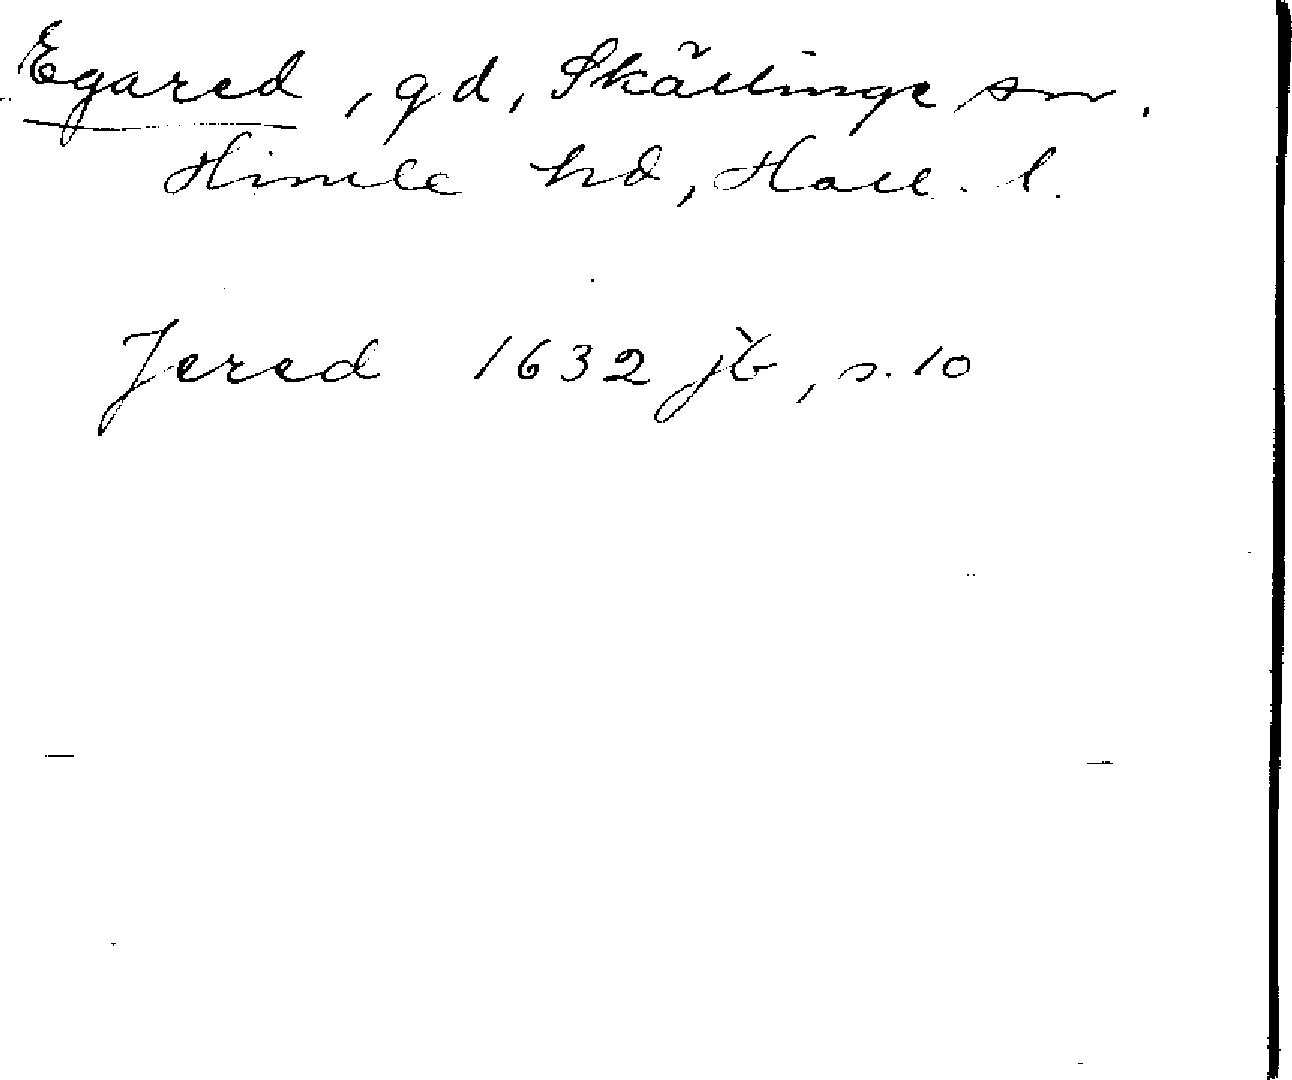 Egared, gd, Skällinge sn.
Himle hd, Hall. l.
Jered 1632 jb, s. 10